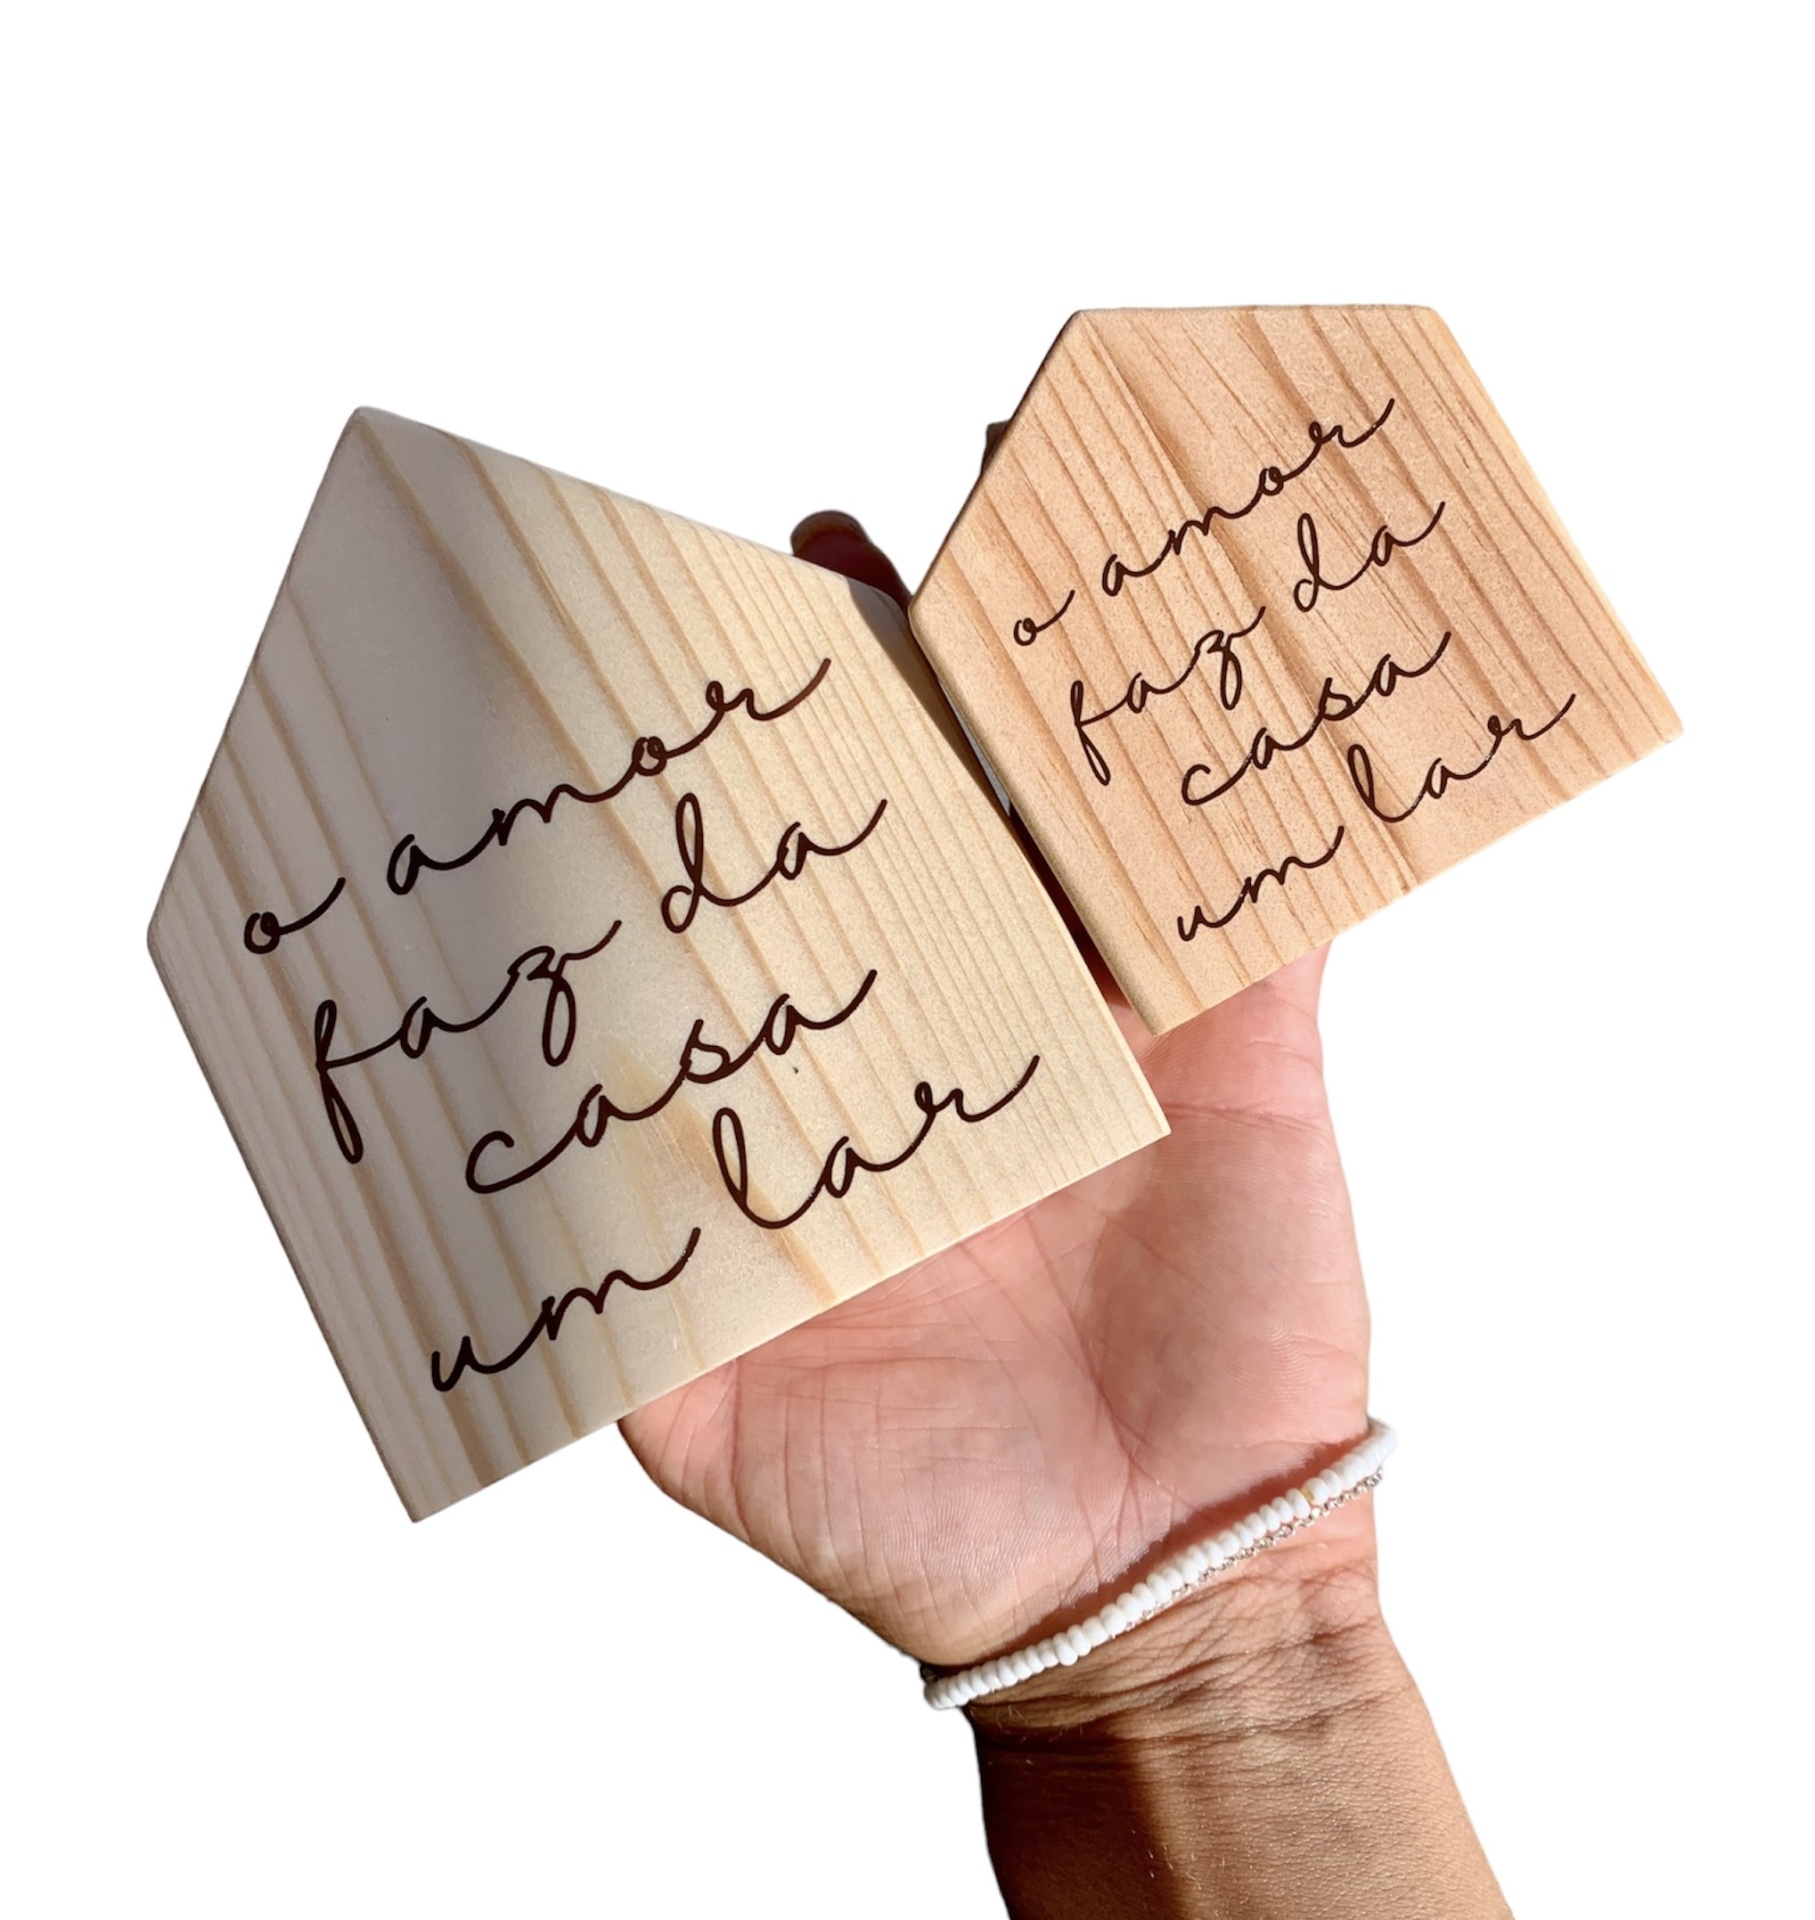 o amor
faz da
casa
um lar
o amor
faz da
casa
um lar